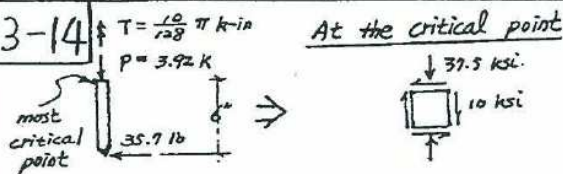 3-14
T = 10/128 π k-in
P = 3.92 K
most critical point
35.7 lb
6"
⇒
At the critical point
37.5 ksi.
10 ksi